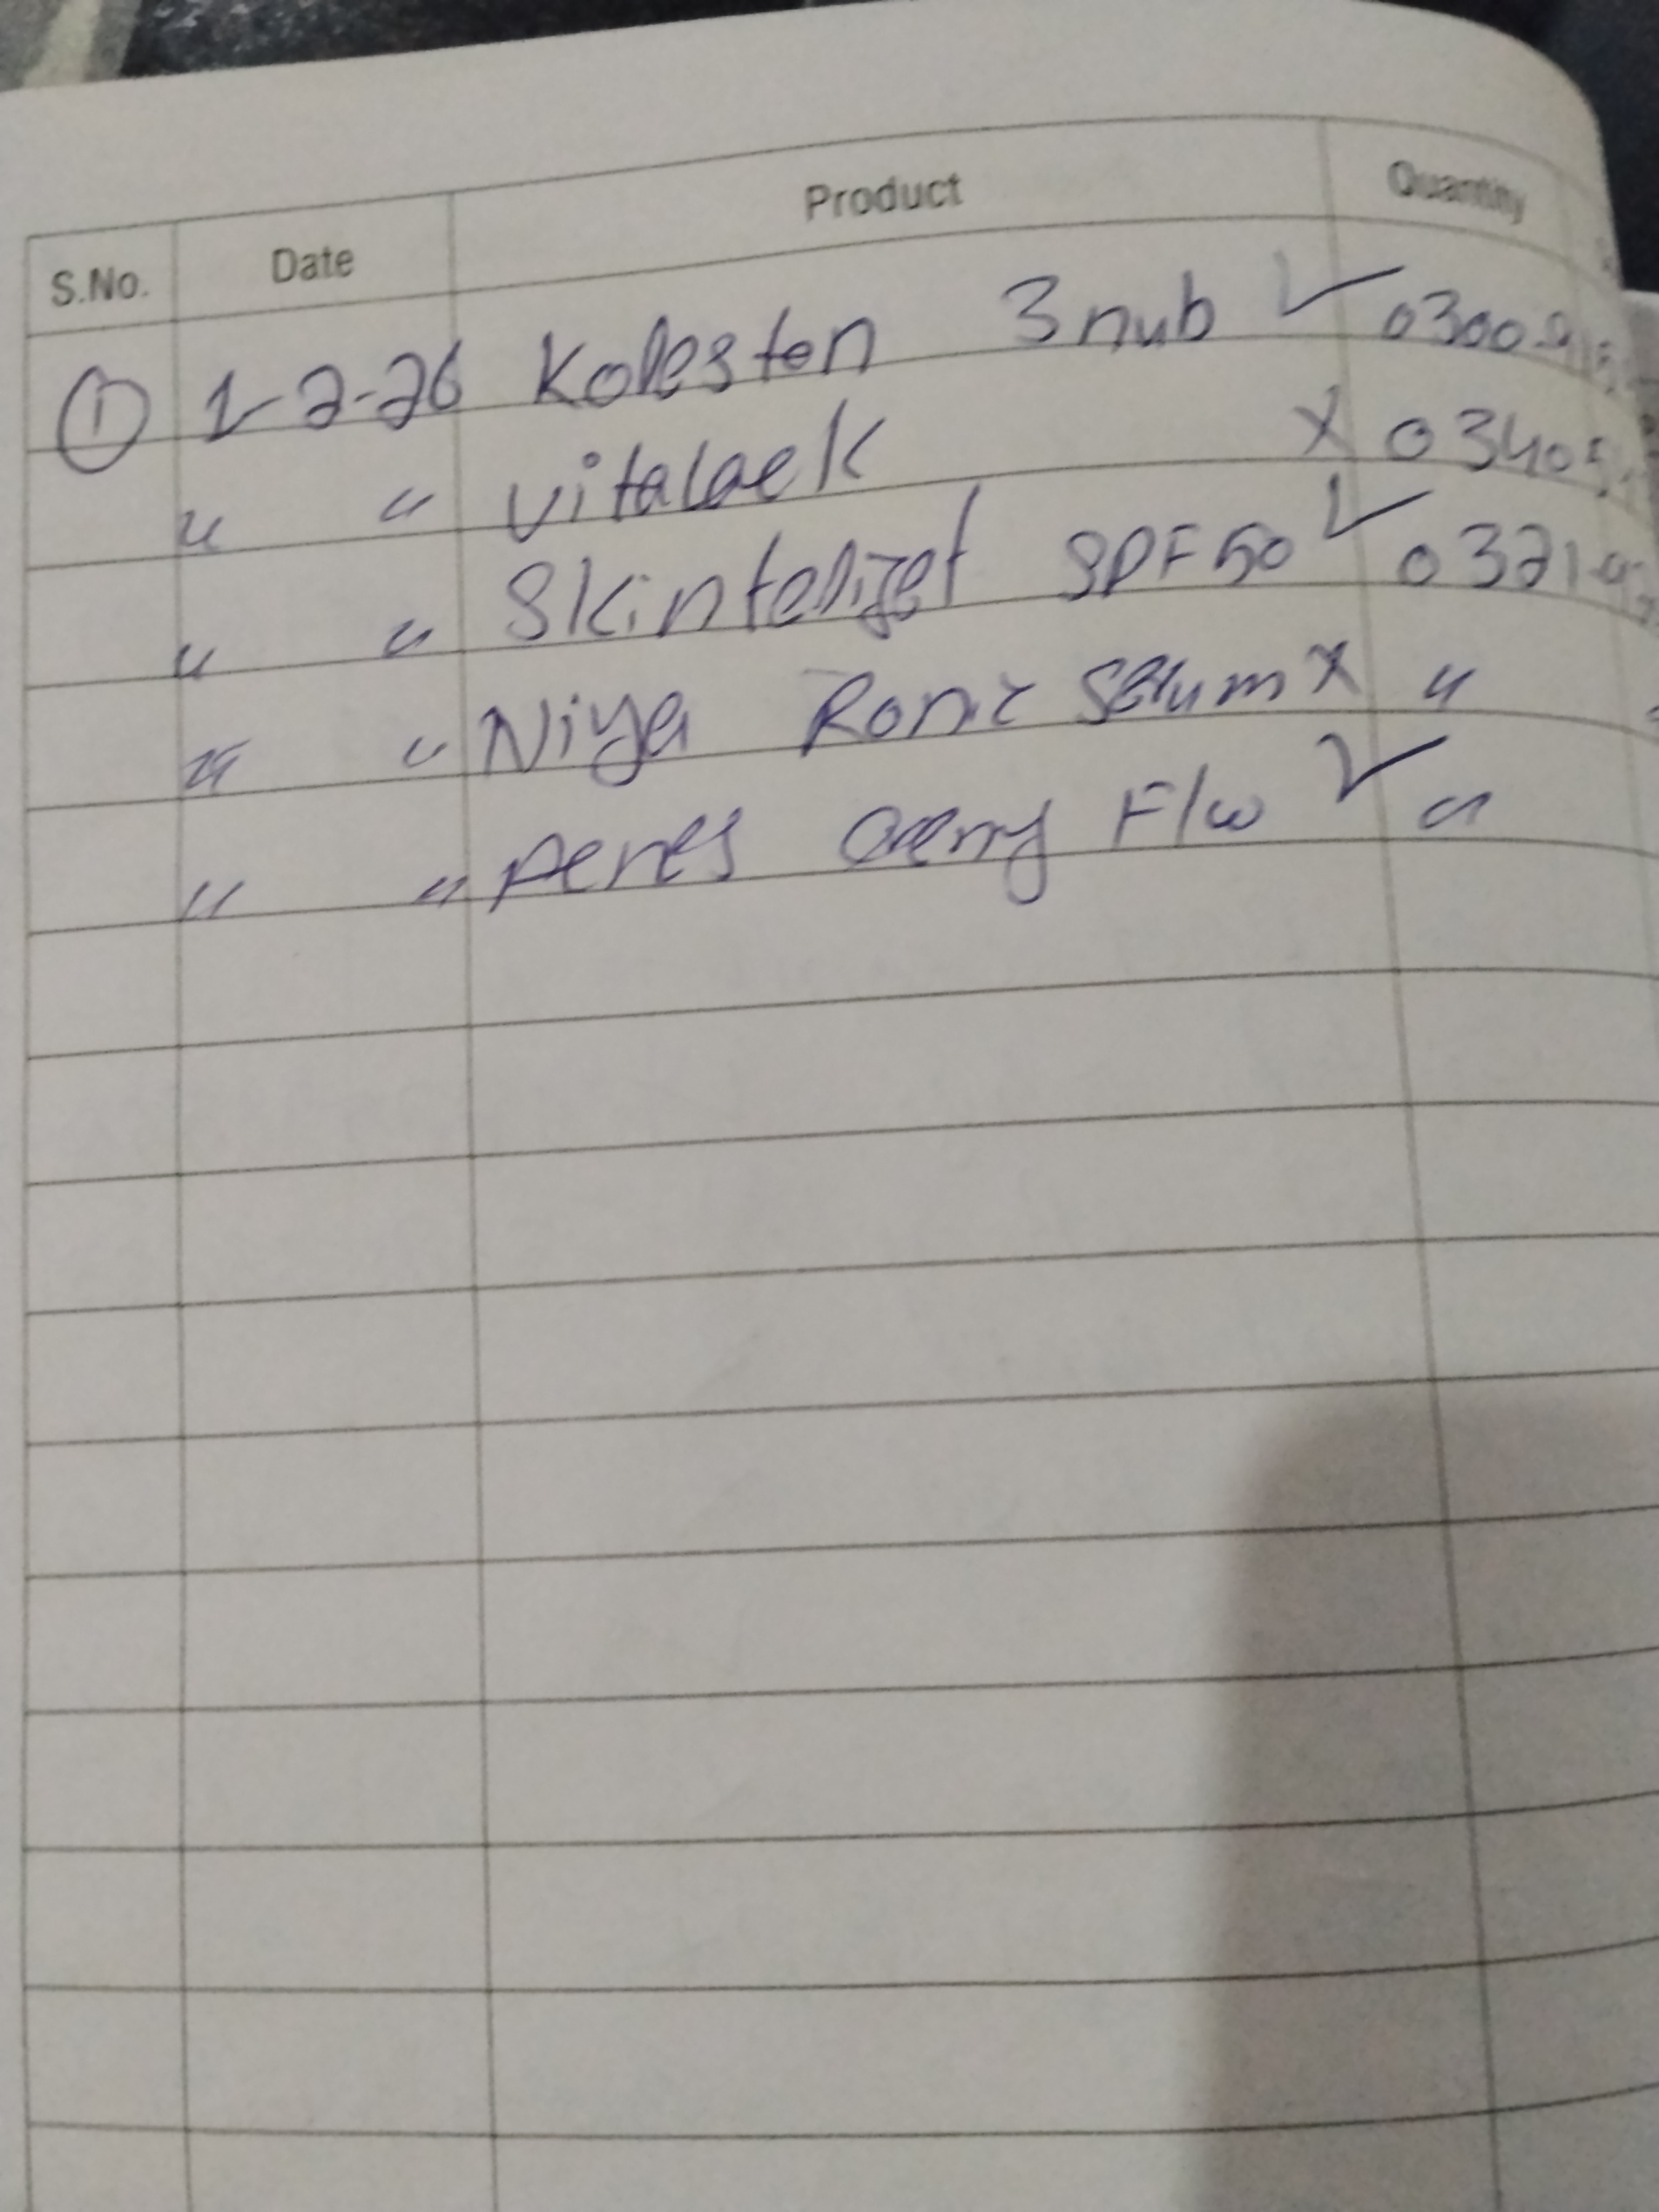 S.No. Date Product Quantity
① 1-2-26 Koleston 3 nub ✓ 0300
" " vitalaek X 0340
" " Skintelizet SPF 50 ✓ 0321
" " Niya Ronic Serum X "
" " peres Gerny F/w ✓ "